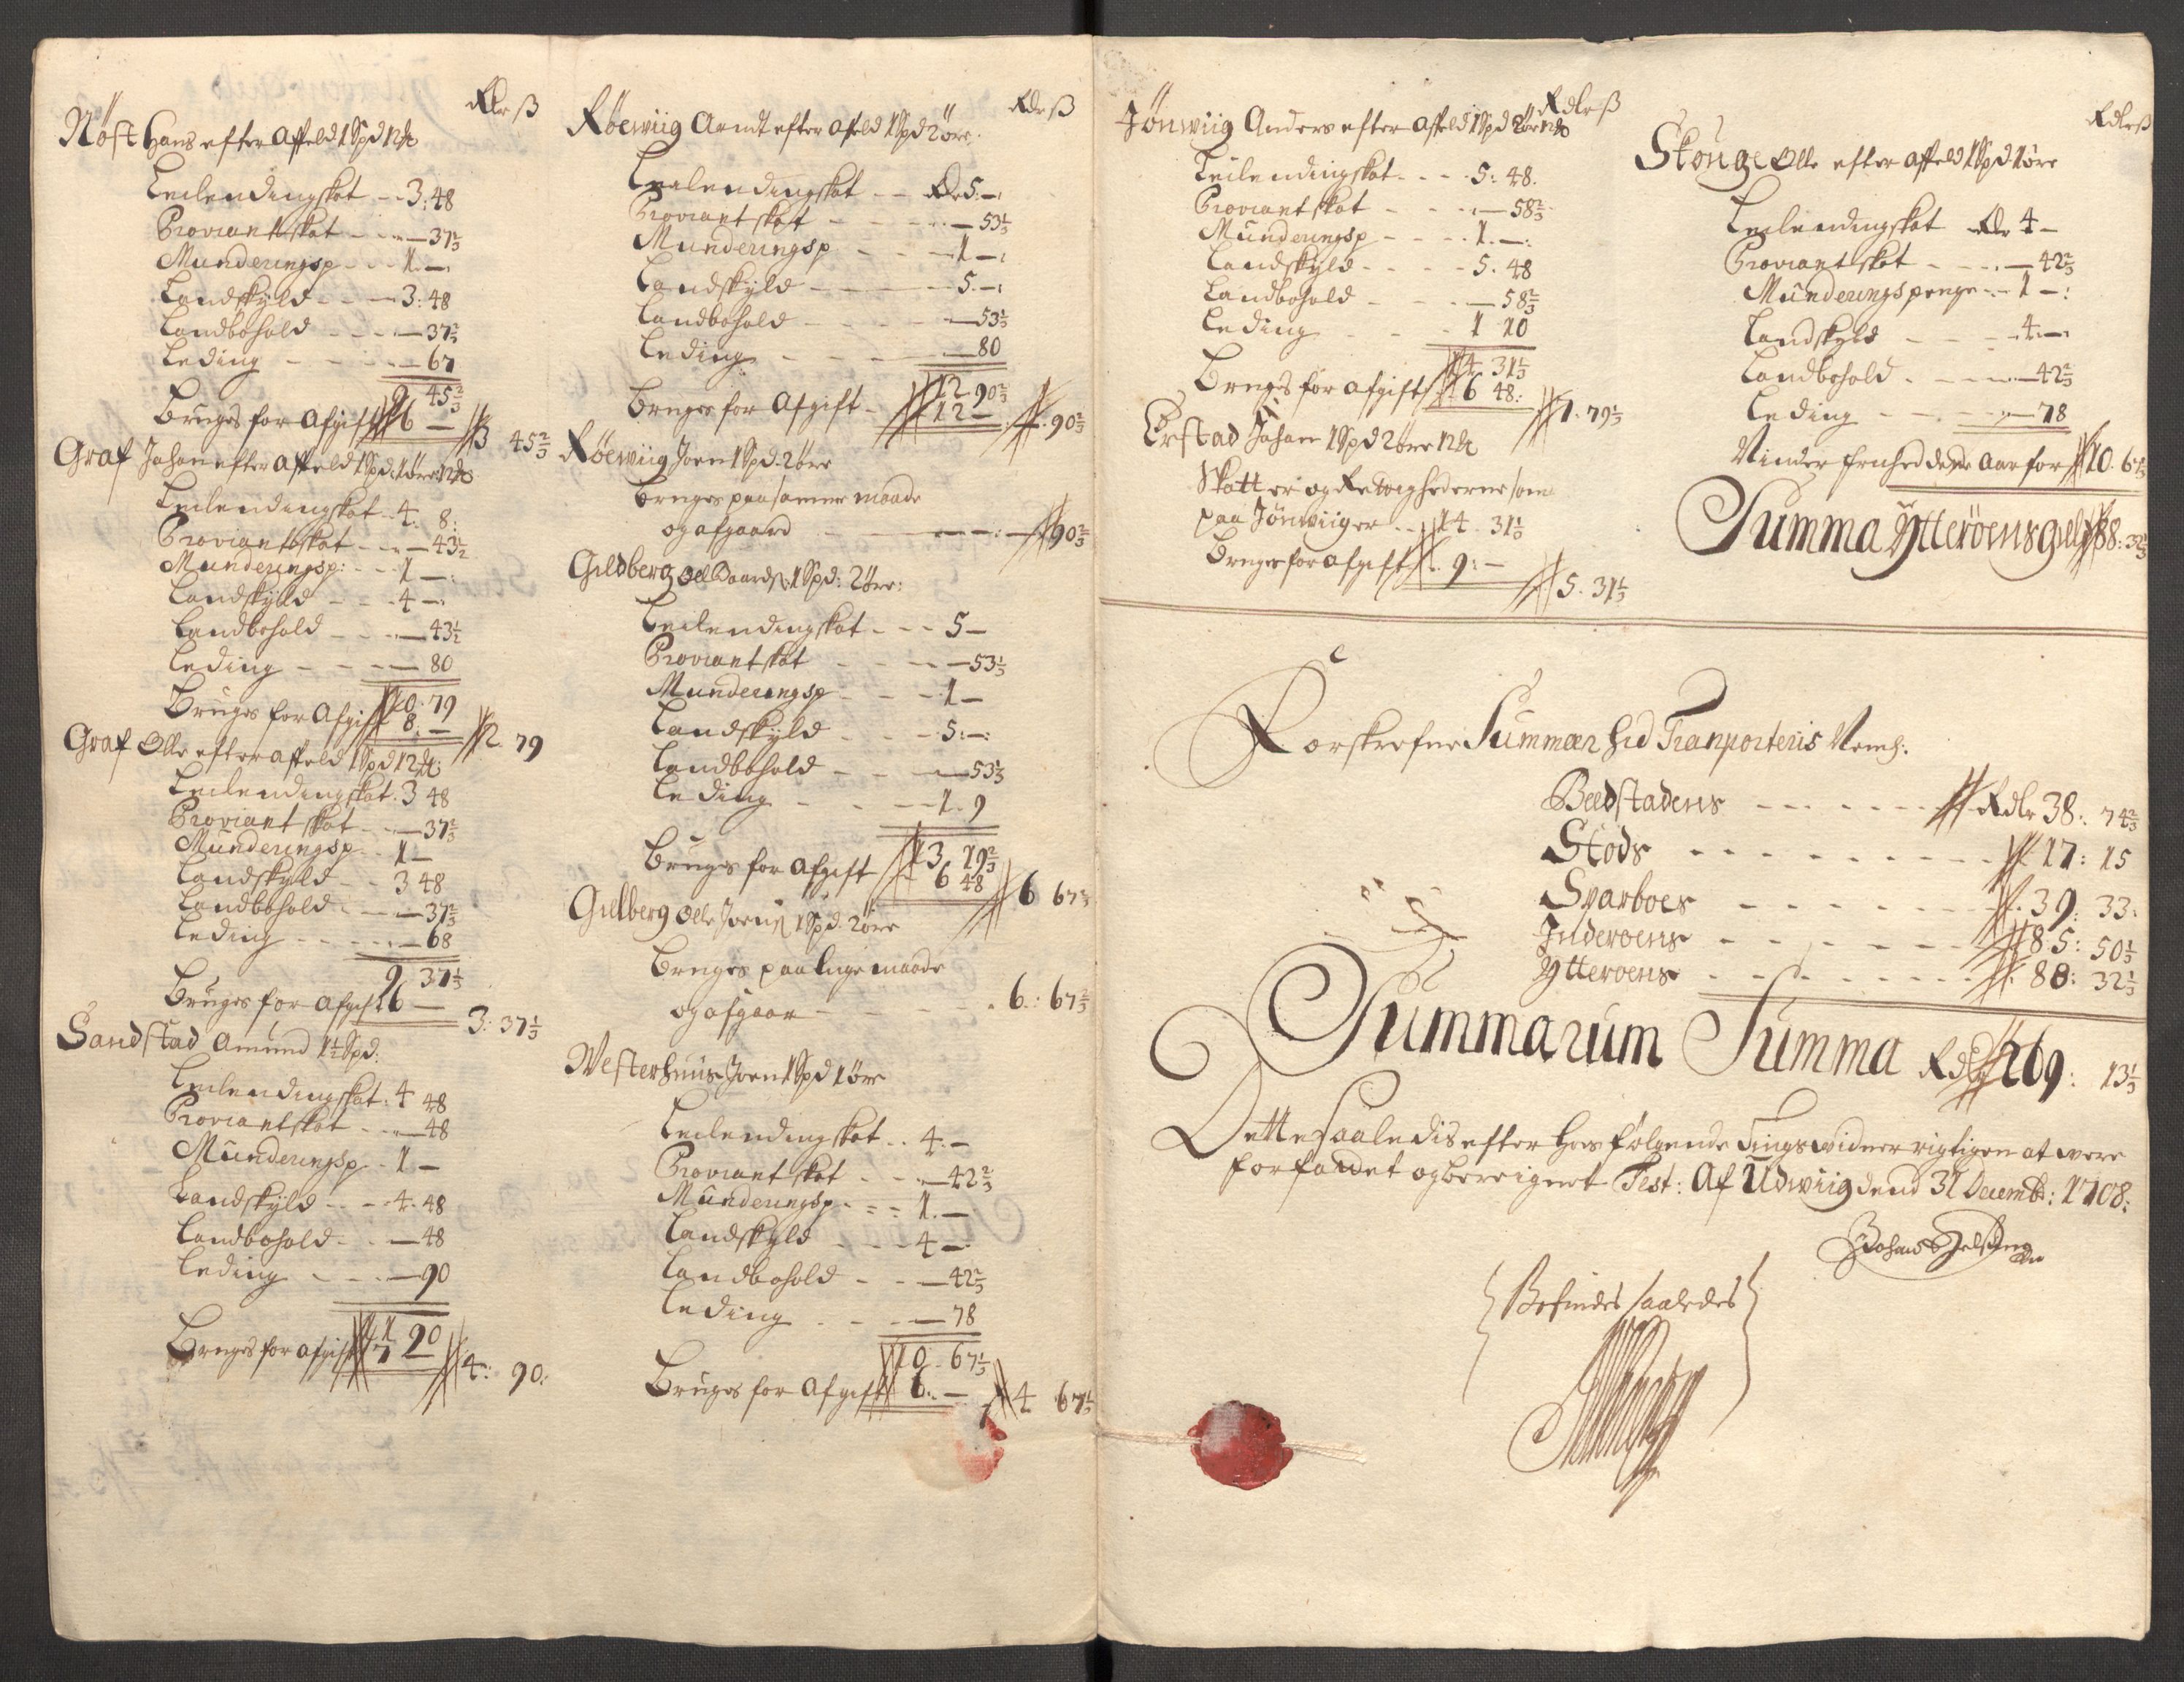 Rdr ß
Nøst Hans efter affeld 1 Spd 12 ℔
Leilendingskat - - 3: 48
Proviantskat - - - 37 2/3
Munderingsp - - 1 -
Landskyld - - - 3: 48
Landbohold - - - 37 2/3
Leding - - - - 67
9 45 2/3
Bruges for Afgift 6 -
3 45 2/3
Graf Johan efter affeld 1 Spd: 1 øre 12 ℔
Leilendingskat - 4. 8:
Proviantskat - - - 43 1/2
Munderingsp: - - 1 -:
Landskyld - - - 4 -
Landbohold - - - 43 1/2
Leding - - - - 80
10. 79
Bruges for Afgift 8. -
2. 79
Graf Olle efter affeld 1 Spd 12 ℔
Leilendingskat. 3 48
Proviantskat - - 37 2/3
Munderingsp - - 1 -
Landskyld - - 3 48
Landbohold - - - 37 2/3
Leding - - - - 68
9 37 1/3
Bruges for Afgift 6 -
3: 37 1/3
Sandstad Amund 1 1/2 Spd:
Leilendingskat: 4 48
Proviantskat - - - 48
Munderingsp - 1 -
Landskyld - - - 4. 48
Landbohold - - - 48
Leding - - - - 90
11 90
Bruges for afgift 7 -
4: 90:
Rdr ß
Røewiig Arndt efter affeld 1 Spd 2 øre.
Leilendingskat - - Rdr 5. -:
Proviantskat - - - - 53 1/3
Munderingsp - - - 1 -:
Landskyld - - - - 5. -:
Landbohold - - - - 53 1/3
Leding - - - - 80
12. 90 2/3
Bruges for Afgift - 12 - . 90 2/3
Røewiig Joen 1 Spd. 2 øre
bruges paa samme maade
og afgaard - - - - 90 2/3
Gildberg Oel Baards: 1 Spd: 2 øre:
Leilendingskat - - - 5 -
Proviantskat - - - - 53 1/3
Munderingsp - - - 1 -
Landskyld - - - 5: -:
Landbohold - - - 53 1/3
Leding - - - - 1. 9
13. 19 2/3
Bruges for Afgift 6 48
6 67 2/3
Gilberg Olle Joens 1 Spd. 2 øre
bruges paa lige maade
og afgaar - - - - 6.: 67 2/3
Westerhuus Joen 1 Spd 1 øre
Leilendingskat . . 4. -
Proviantskat - - - 42 2/3
Munderingsp - - - 1. -
Landskyld - - - 4 -
Landbohold - - - 42 2/3
Leding - - - - 78
10. 67 1/3
Bruges for Afgift 6. -
4 67 1/3
Rdlr ß
Jønwiig Anders efter affeld 1 Spd 2 øre 12 ℔
Leilendingskat - - - 5: 48.
Proviantskat - - - - 58 2/3
Munderingsp - - - 1. -:
Landskyld - - - - 5. 48
Landbohold - - - - 58 2/3
Leding - - - - 1 10
14 31 1/3
Bruges for afgift 6 48:
7. 79 1/3
Erstad Johan 1 Spd 2 øre 12 ℔
Skatter og Retwighederne som
paa Jønwiig er - - 14. 31 1/3
Bruges for afgift . 9: -
5. 31 1/3
Rdlr ß
Stouge Olle efter affeld 1 Spd 1 øre
Leilendingskat Rdr 4 -
Proviantskat - - - - 42 2/3
Munderingspenge - - 1 -:
Landskyld - - - - 4. -
Landbohold . - - - - 42 2/3
Leding - - - - 78
Ninder frihed dette Aar for 10. 67 1/3
Summa Ytterøens gield 88: 32 1/3
Forskrefne Summer hid Tranporteris Neml:
Beedstadens - - - - Rdlr 38: 74 2/3
Stods - - - - - - - 17: 15
Sparboes - - - - - - . 39: 33:
Inderoens - - - - - - 85: 50 1/3
Ytterøens - - - - - - 88: 32 1/3
Summarum Summa Rdlr 269: 13 1/3
Dette saaledis efter hos følgende Tings widner rigtigen at were
forfattet og bereignet Test: Af Udwiig dend 31 Decembr: 1708:
Befindes saaledes